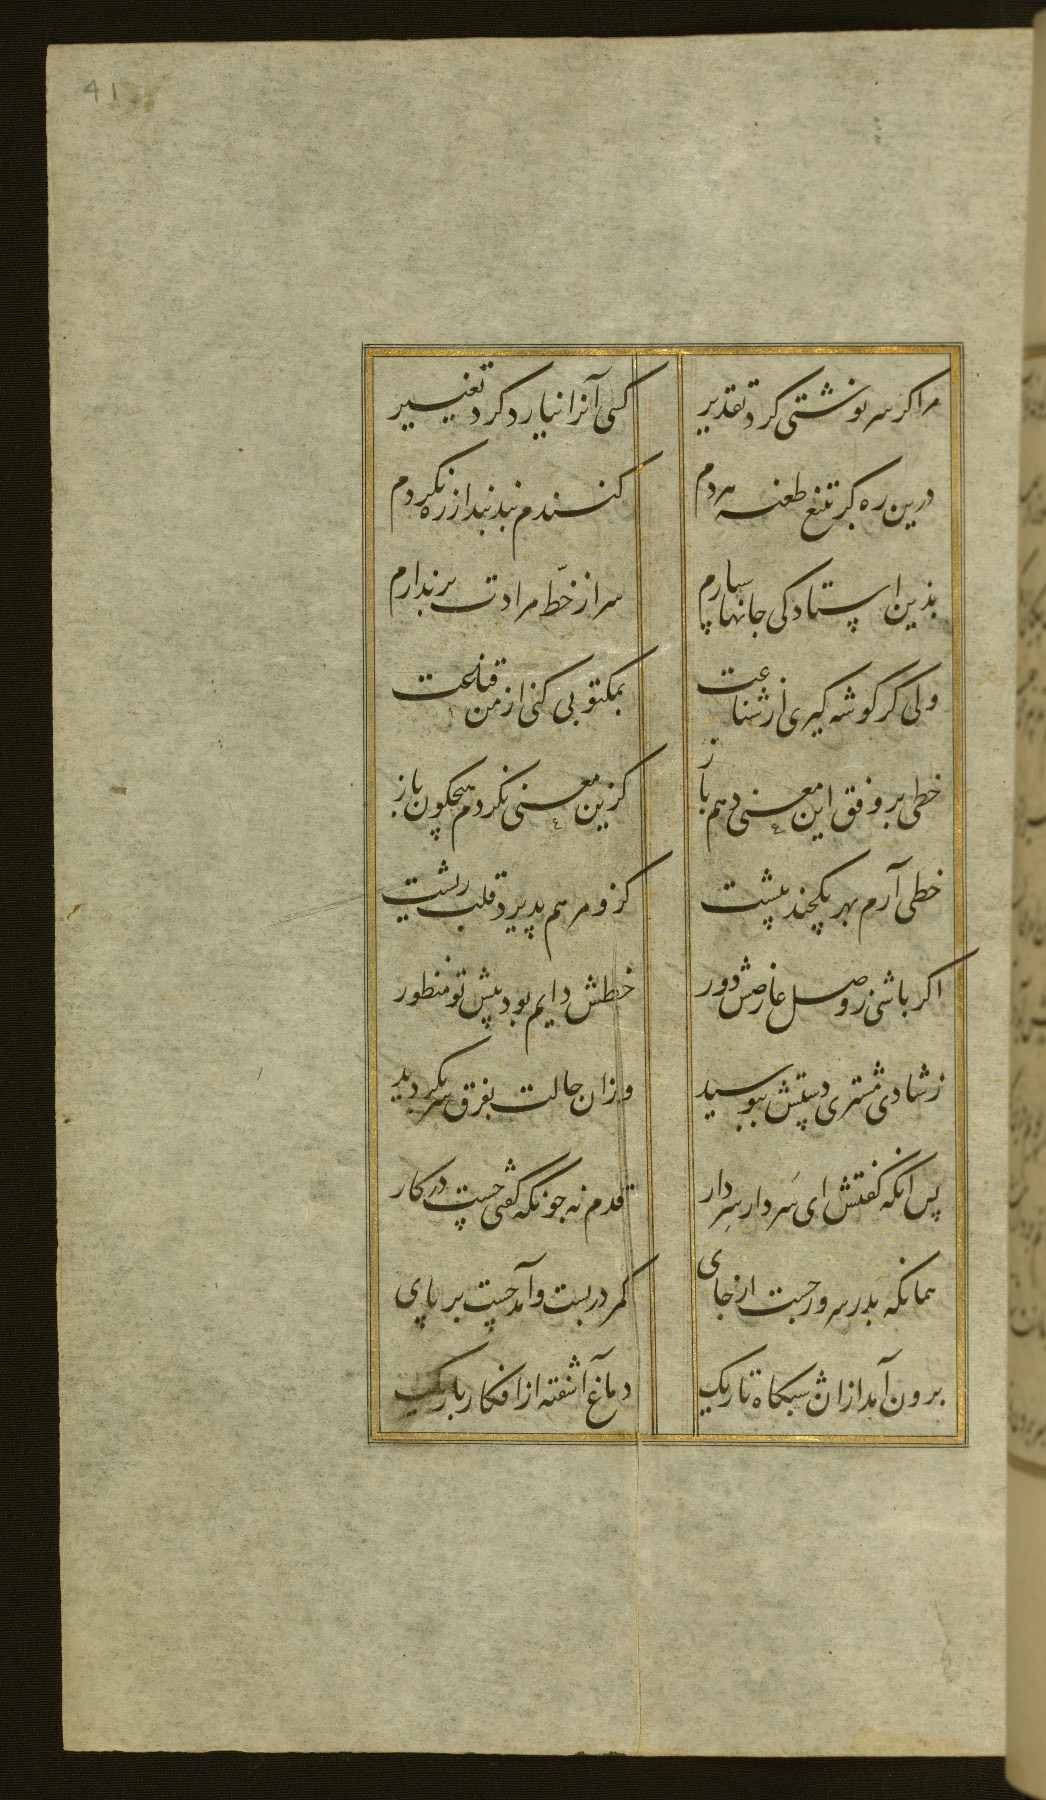 41
مرا کر سر نوشتی کرد تقدیر
کسی آنرا نیارد کرد تغییر
درین ره کر بتیغ طعنه مردم
کنندم بند بند از ره نکردم
بدین استادکی جانها سپارم
سر از خط مرادت برندارم
ولی گر گوشه کیری از شناعت
بمکتوبی کنی از من قناعت
خطی بر وفق این معنی دهم باز
کزین معنی نکردم هیچکون باز
خطی آرم بهر یکچند پیشت
کزو مرهم پذیرد قلب ریشت
اکر باشی ز وصل عارضش دور
خطش دایم بود پیش تو منظور
ز شادی مشتری دستش ببوسید
وزان حالت بفرق سر بکردید
پس انکه کفتش ای سردار سردار
قدم نه جونکه کفتی جست در کار
همانکه بدر سرور جست از جای
کمر دربست وآمد جست بر پای
برون آمد ازان شبکاه تاریک
دماغ آشفته از افکار باریک